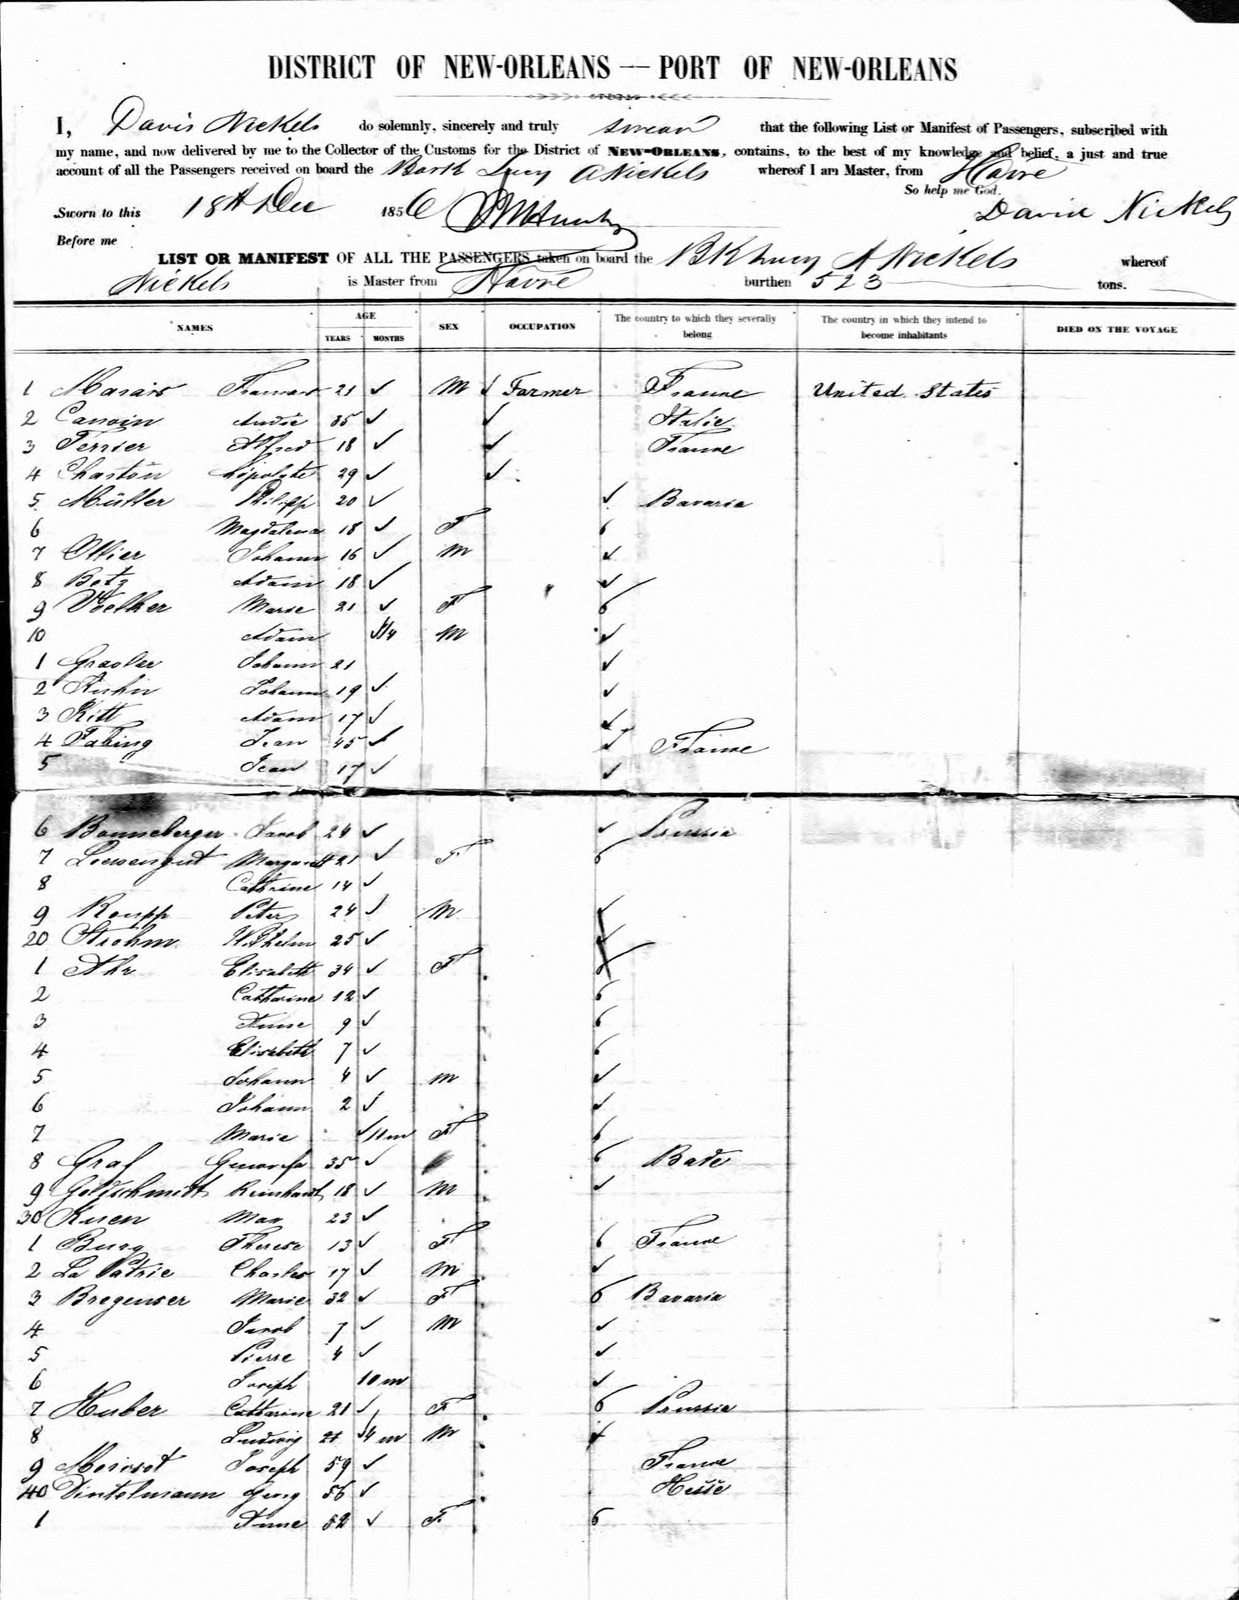 DISTRICT OF NEW-ORLEANS — PORT OF NEW-ORLEANS
I, Davis Nickels do solemnly, sincerely and truly swear that the following List or Manifest of Passengers, subscribed with
my name, and now delivered by me to the Collector of the Customs for the District of NEW-ORLEANS, contains, to the best of my knowledge and belief, a just and true
account of all the Passengers received on board the Bark Lucy A Nickels whereof I am Master, from Havre
So help me God.
Sworn to this 18th Dec 1856 David Nickels
Before me
LIST OR MANIFEST OF ALL THE PASSENGERS taken on board the Bk Lucy A Nickels whereof
Nickels is Master from Havre burthen 523 tons.
NAMES AGE YEARS MONTHS SEX OCCUPATION The country to which they severally belong The country in which they intend to become inhabitants DIED ON THE VOYAGE
1 Marais 21 M Farmer France United States
2 35 Italie
3 Alfred 18 France
4 29
5 Müller Philipp 20 Bavaria
6 Magdalena 18 F
7 Johann 16 M
8 Betz Adam 18
9 Voelker Marie 21 F
10 Adam M
1 Johann 21
2 Johann 19
3 Kitt Adam 17
4 Fabing Jean 45 France
5 Jean 17
6 Bonneberger Jacob 24 Prussia
7 Loewengut Margareth 21 F
8 Cathrine 14
9 Roupp Peter 24 M
20 Strohm Wilhelm 25
1 Ahr Elisabeth 34 F
2 Catharine 12
3 Anne 9
4 Elisabeth 7
5 Johann 4 M
6 Johann 2
7 Marie 11 m F
8 Graf Genovefa 35 Bade
9 Goldschmidt Reinhard 18 M
30 Kuen Max 23
1 Burg Therese 13 F France
2 La Patrie Charles 17 M
3 Bregenser Marie 32 F Bavaria
4 Jacob 7 M
5 Pierre 4
6 Joseph 10 m
7 Huber Catharine 21 F Prussia
8 Ludwig 4 m M
9 Joseph 59 France
40 Dintelmann Georg 56 Hesse
1 Anne 52 F